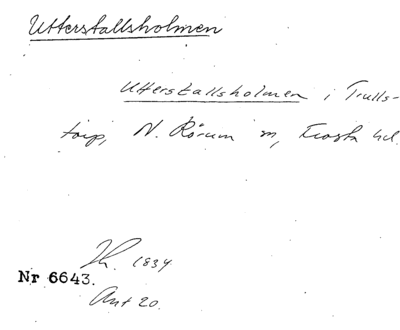 Utterstallsholmen
Utterstallsholmen i Trulls-
torp, N. Rörum sn, Frosta hd.
Th. 1834
Nr 6643.
Ant 20.